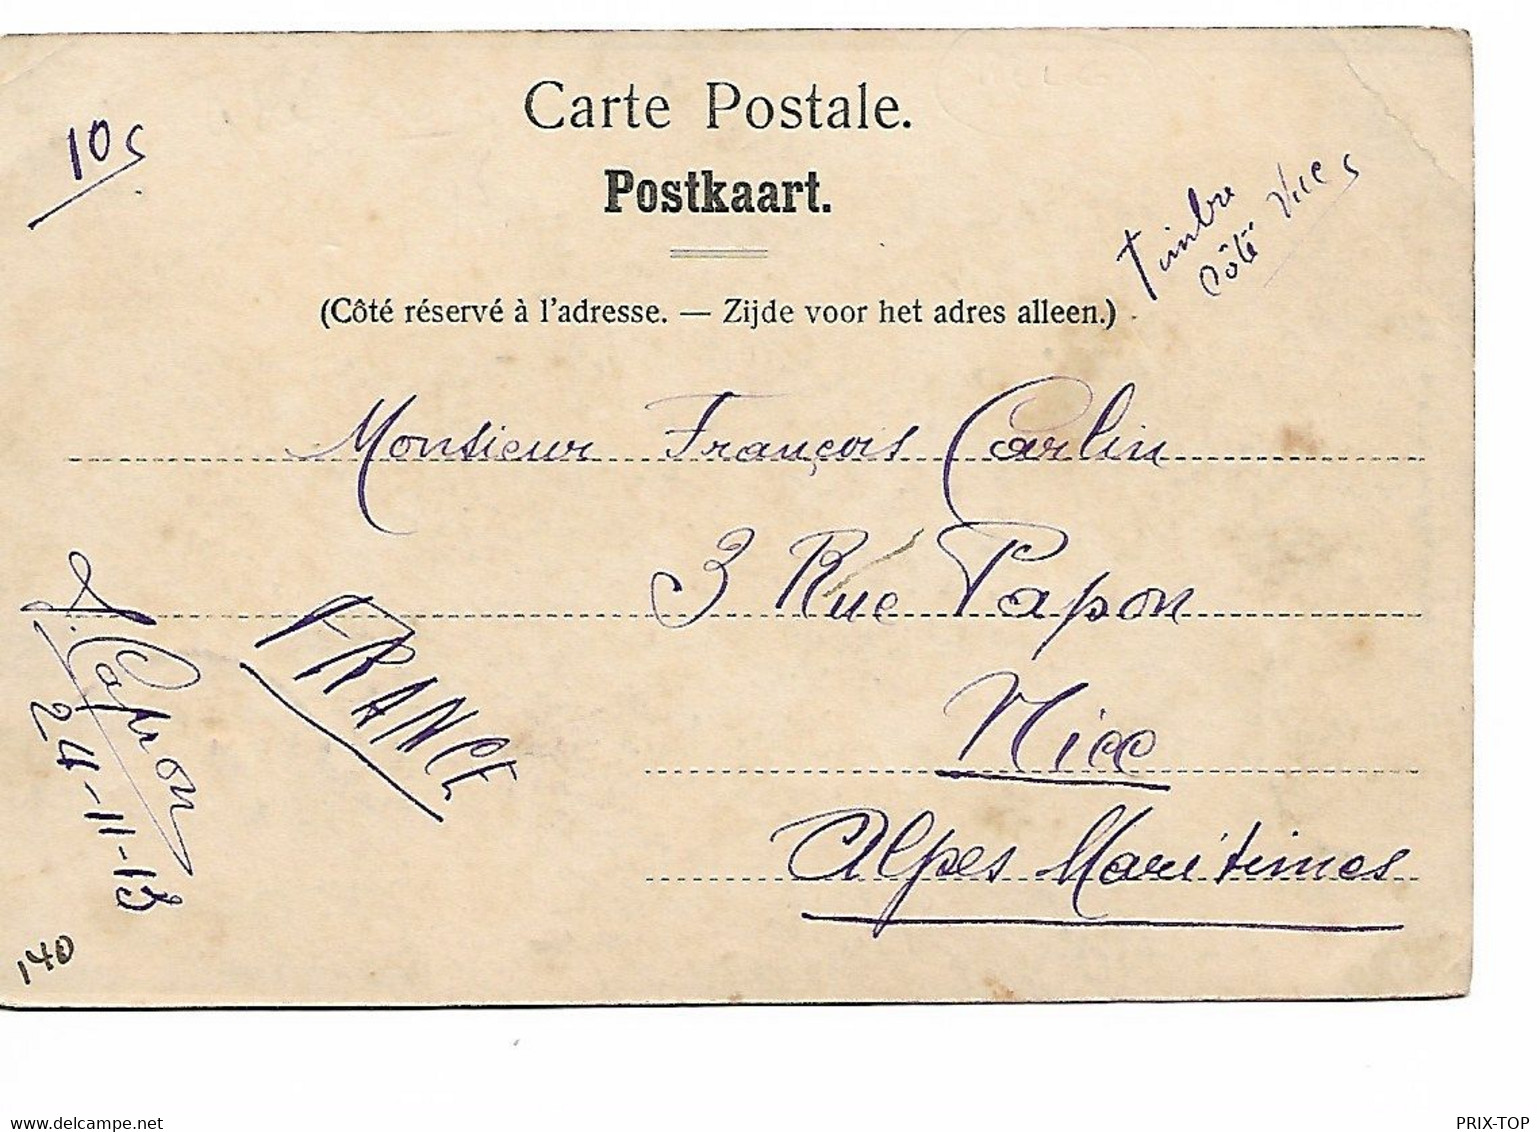 Carte Postale.
Postkaart.
10c
Timbre
côté vues
(Côté réservé à l'adresse. — Zijde voor het adres alleen.)
Monsieur François Carlin
3 Rue Papon
Nice
Alpes Maritimes
FRANCE
Capron
24-11-13
140
www.delcampe.net
PRIX-TOP